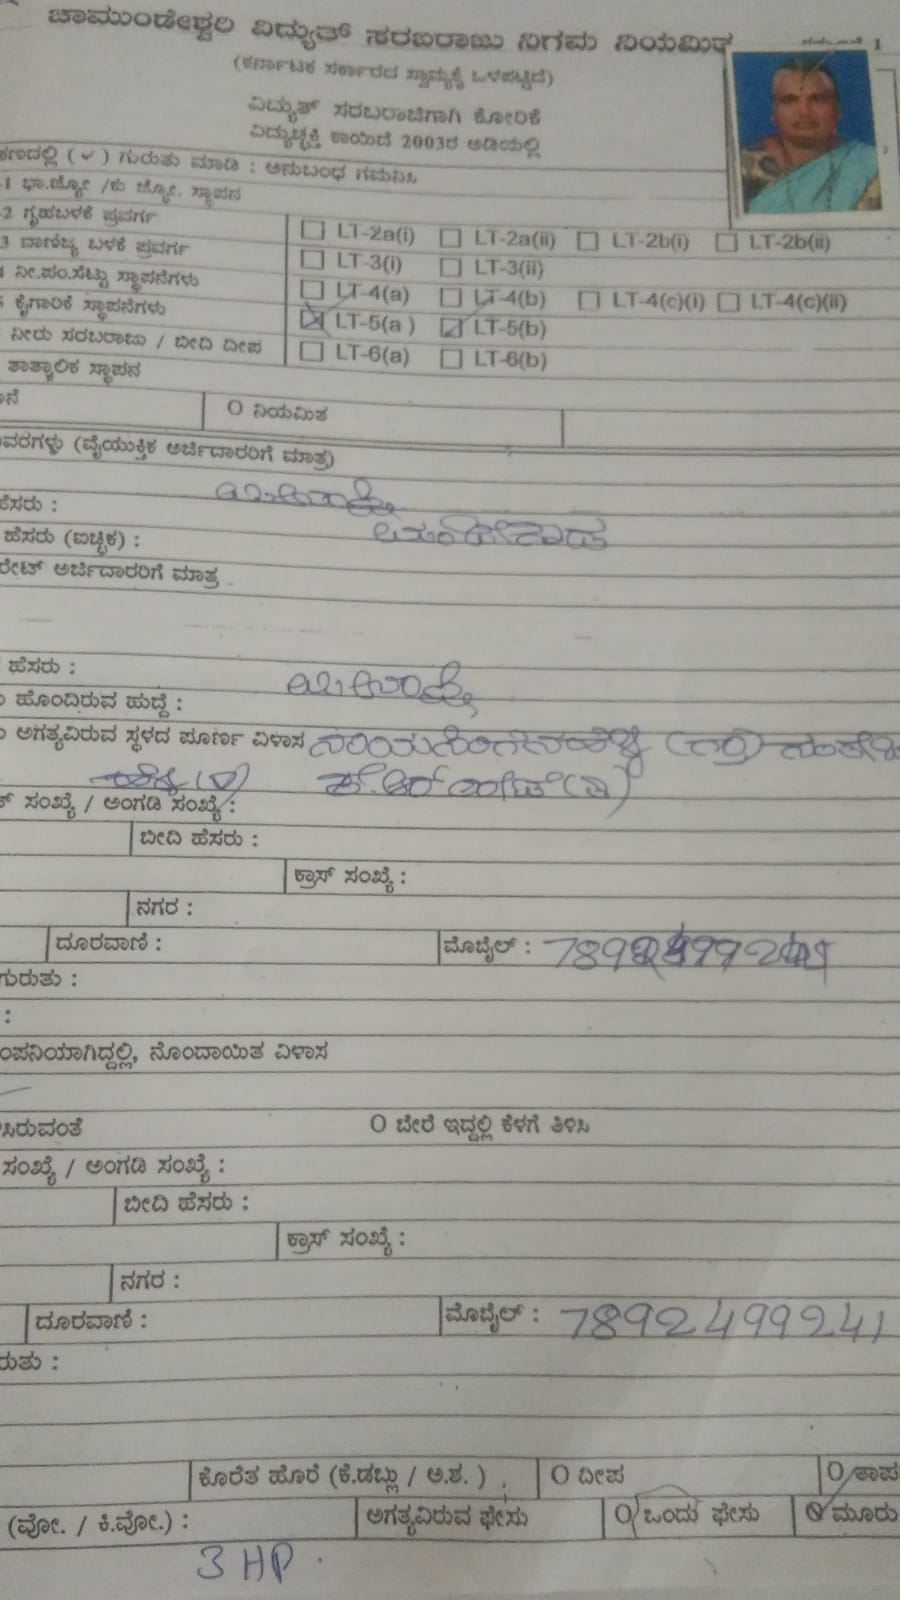 ಚಾಮುಂಡೇಶ್ವರಿ ವಿದ್ಯುತ್ ಸರಬರಾಜು ನಿಗಮ ನಿಯಮಿತ
1
(ಕರ್ನಾಟಕ ಸರ್ಕಾರದ ಸ್ವಾಮ್ಯಕ್ಕೆ ಒಳಪಟ್ಟಿದೆ)
ವಿದ್ಯುತ್ ಸರಬರಾಜಿಗಾಗಿ ಕೋರಿಕೆ
ವಿದ್ಯುಚ್ಛಕ್ತಿ ಕಾಯಿದೆ 2003ರ ಅಡಿಯಲ್ಲಿ
ಕಣದಲ್ಲಿ (✓) ಗುರುತು ಮಾಡಿ : ಅನುಬಂಧ ಗಮನಿಸಿ
-1 ಭಾ.ಜ್ಯೋ /ಕು ಜ್ಯೋ. ಸ್ಥಾಪನ
-2 ಗೃಹಬಳಕೆ ಪ್ರವರ್ಗ
LT-2a(i) LT-2a(ii) LT-2b(i) LT-2b(ii)
3 ವಾಣಿಜ್ಯ ಬಳಕೆ ಪ್ರವರ್ಗ
LT-3(i) LT-3(ii)
4 ನೀ.ಪಂ.ಸೆಟ್ಟು ಸ್ಥಾಪನೆಗಳು
LT-4(a) LT-4(b) LT-4(c)(i) LT-4(c)(ii)
5 ಕೈಗಾರಿಕೆ ಸ್ಥಾಪನೆಗಳು
LT-5(a) LT-5(b)
ನೀರು ಸರಬರಾಜು / ಬೀದಿ ದೀಪ
LT-6(a) LT-6(b)
ತಾತ್ಕಾಲಿಕ ಸ್ಥಾಪನ
O ನಿಯಮಿತ
ವರಗಳು (ವೈಯುಕ್ತಿಕ ಅರ್ಜಿದಾರಂಗೆ ಮಾತ್ರ)
ಹೆಸರು :
ಹೆಸರು (ಐಚ್ಛಿಕ) :
ರೇಟ್ ಅರ್ಜಿದಾರರಿಗೆ ಮಾತ್ರ
ಹೆಸರು :
ಹೊಂದಿರುವ ಹುದ್ದೆ :
ಅಗತ್ಯವಿರುವ ಸ್ಥಳದ ಪೂರ್ಣ ವಿಳಾಸ
ಸಂಖ್ಯೆ / ಅಂಗಡಿ ಸಂಖ್ಯೆ :
ಬೀದಿ ಹೆಸರು :
ಕ್ರಾಸ್ ಸಂಖ್ಯೆ :
ನಗರ :
ದೂರವಾಣಿ : ಮೊಬೈಲ್ :
ಗುರುತು :
:
ಂಪನಿಯಾಗಿದ್ದಲ್ಲಿ, ನೊಂದಾಯಿತ ವಿಳಾಸ
ಸಿರುವಂತೆ O ಬೇರೆ ಇದ್ದಲ್ಲಿ ಕೆಳಗೆ ತಿಳಿಸಿ
ಸಂಖ್ಯೆ / ಅಂಗಡಿ ಸಂಖ್ಯೆ :
ಬೀದಿ ಹೆಸರು :
ಕ್ರಾಸ್ ಸಂಖ್ಯೆ :
ನಗರ :
ದೂರವಾಣಿ : ಮೊಬೈಲ್ : 7892499241
ರುತು :
ಕೊರೆತ ಹೊರೆ (ಕೆ.ಡಬ್ಲು / ಅ.ಶ. ) O ದೀಪ O ತಾಪ
(ವೋ. / ಕಿ.ವೋ.) : ಅಗತ್ಯವಿರುವ ಫೇಸು O ಒಂದು ಫೇಸು O ಮೂರು
3 HP